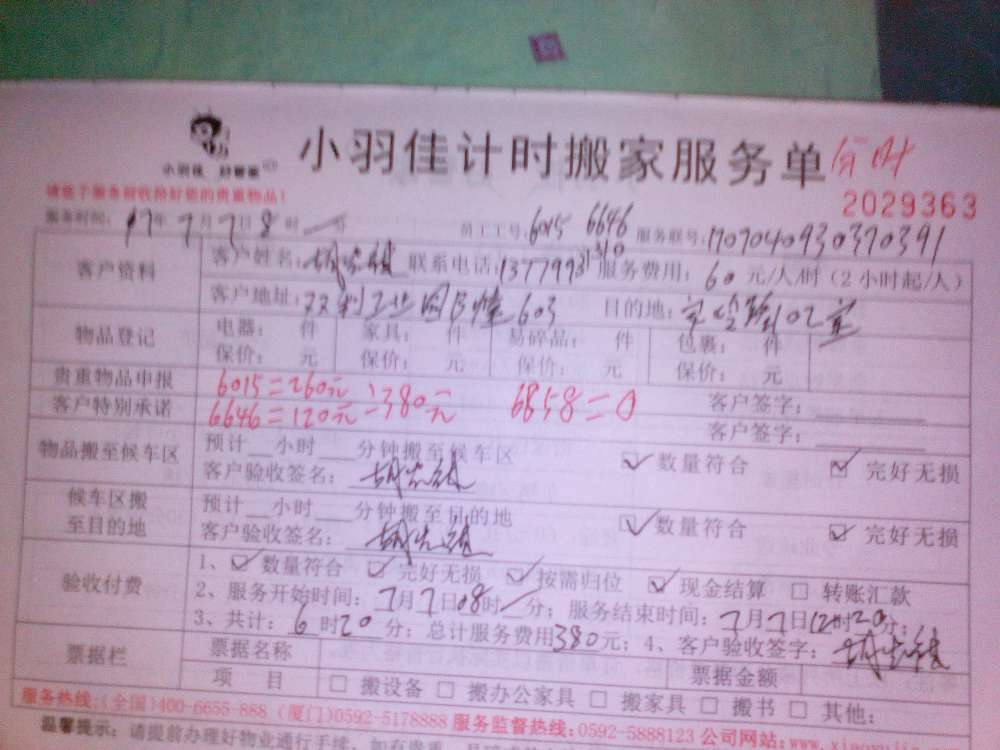 小羽佳 好管家
小羽佳计时搬家服务单 分时
请您于服务前收拾好您的贵重物品!
2029363
服务时间: 17年7月7日8时 分 员工工号: 6015 6646 服务联号: 1707040930370391
客户资料 客户姓名: 联系电话: 服务费用: 60 元/人/时 (2小时起/人)
客户地址: 双利工业园B幢603 目的地: 102室
物品登记 电器: 件 家具: 件 易碎品: 件 包裹: 件
保价: 元 保价: 元 保价: 元 保价: 元
贵重物品申报 6015=260元 6858=0 客户签字:
客户特别承诺 6646=120元 =380元 客户签字:
物品搬至候车区 预计 小时 分钟搬至候车区 ☑ 数量符合 ☑ 完好无损
客户验收签名:
候车区搬至目的地 预计 小时 分钟搬至目的地 ☑ 数量符合 ☑ 完好无损
客户验收签名:
验收付费 1、☑ 数量符合 ☑ 完好无损 ☑ 按需归位 ☑ 现金结算 □ 转账汇款
2、服务开始时间: 7月7日08时 分; 服务结束时间: 7月7日12时20分;
3、共计: 6时20分; 总计服务费用380元; 4、客户验收签字:
票据栏 票据名称 票据金额
项 目 □ 搬设备 □ 搬办公家具 □ 搬家具 □ 搬书 □ 其他:
服务热线:(全国)400-6655-888 (厦门)0592-5178888 服务监督热线:0592-5888123 公司网站:www.xiao
温馨提示: 请提前办理好物业通行手续,如有贵重